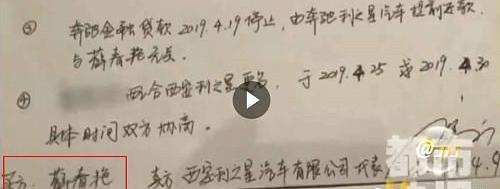 ③ 奔驰金融贷款 2019.4.19停止,由奔驰利之星汽车提前还款
与薛春艳无关。
④ 配合西安利之星更名,于2019.4.25 或 2019.4.30
具体时间双方协商。
买方:薛春艳 卖方:西安利之星汽车有限公司代表
都市